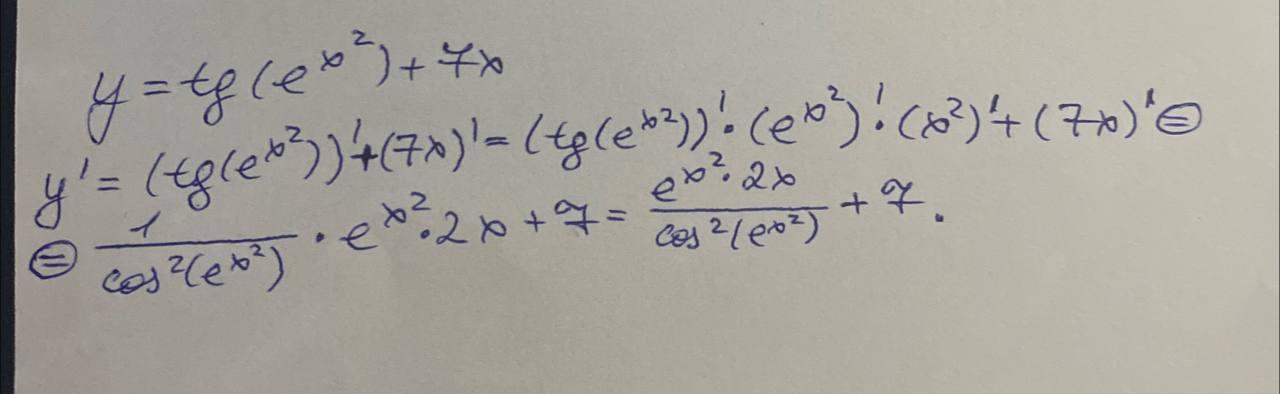 y = tg(e^{x^2}) + 7x
y' = (tg(e^{x^2}))' + (7x)' = (tg(e^{x^2}))' · (e^{x^2})' · (x^2)' + (7x)' ⊜
⊜ \frac{1}{cos^2(e^{x^2})} · e^{x^2} · 2x + 7 = \frac{e^{x^2} · 2x}{cos^2(e^{x^2})} + 7.